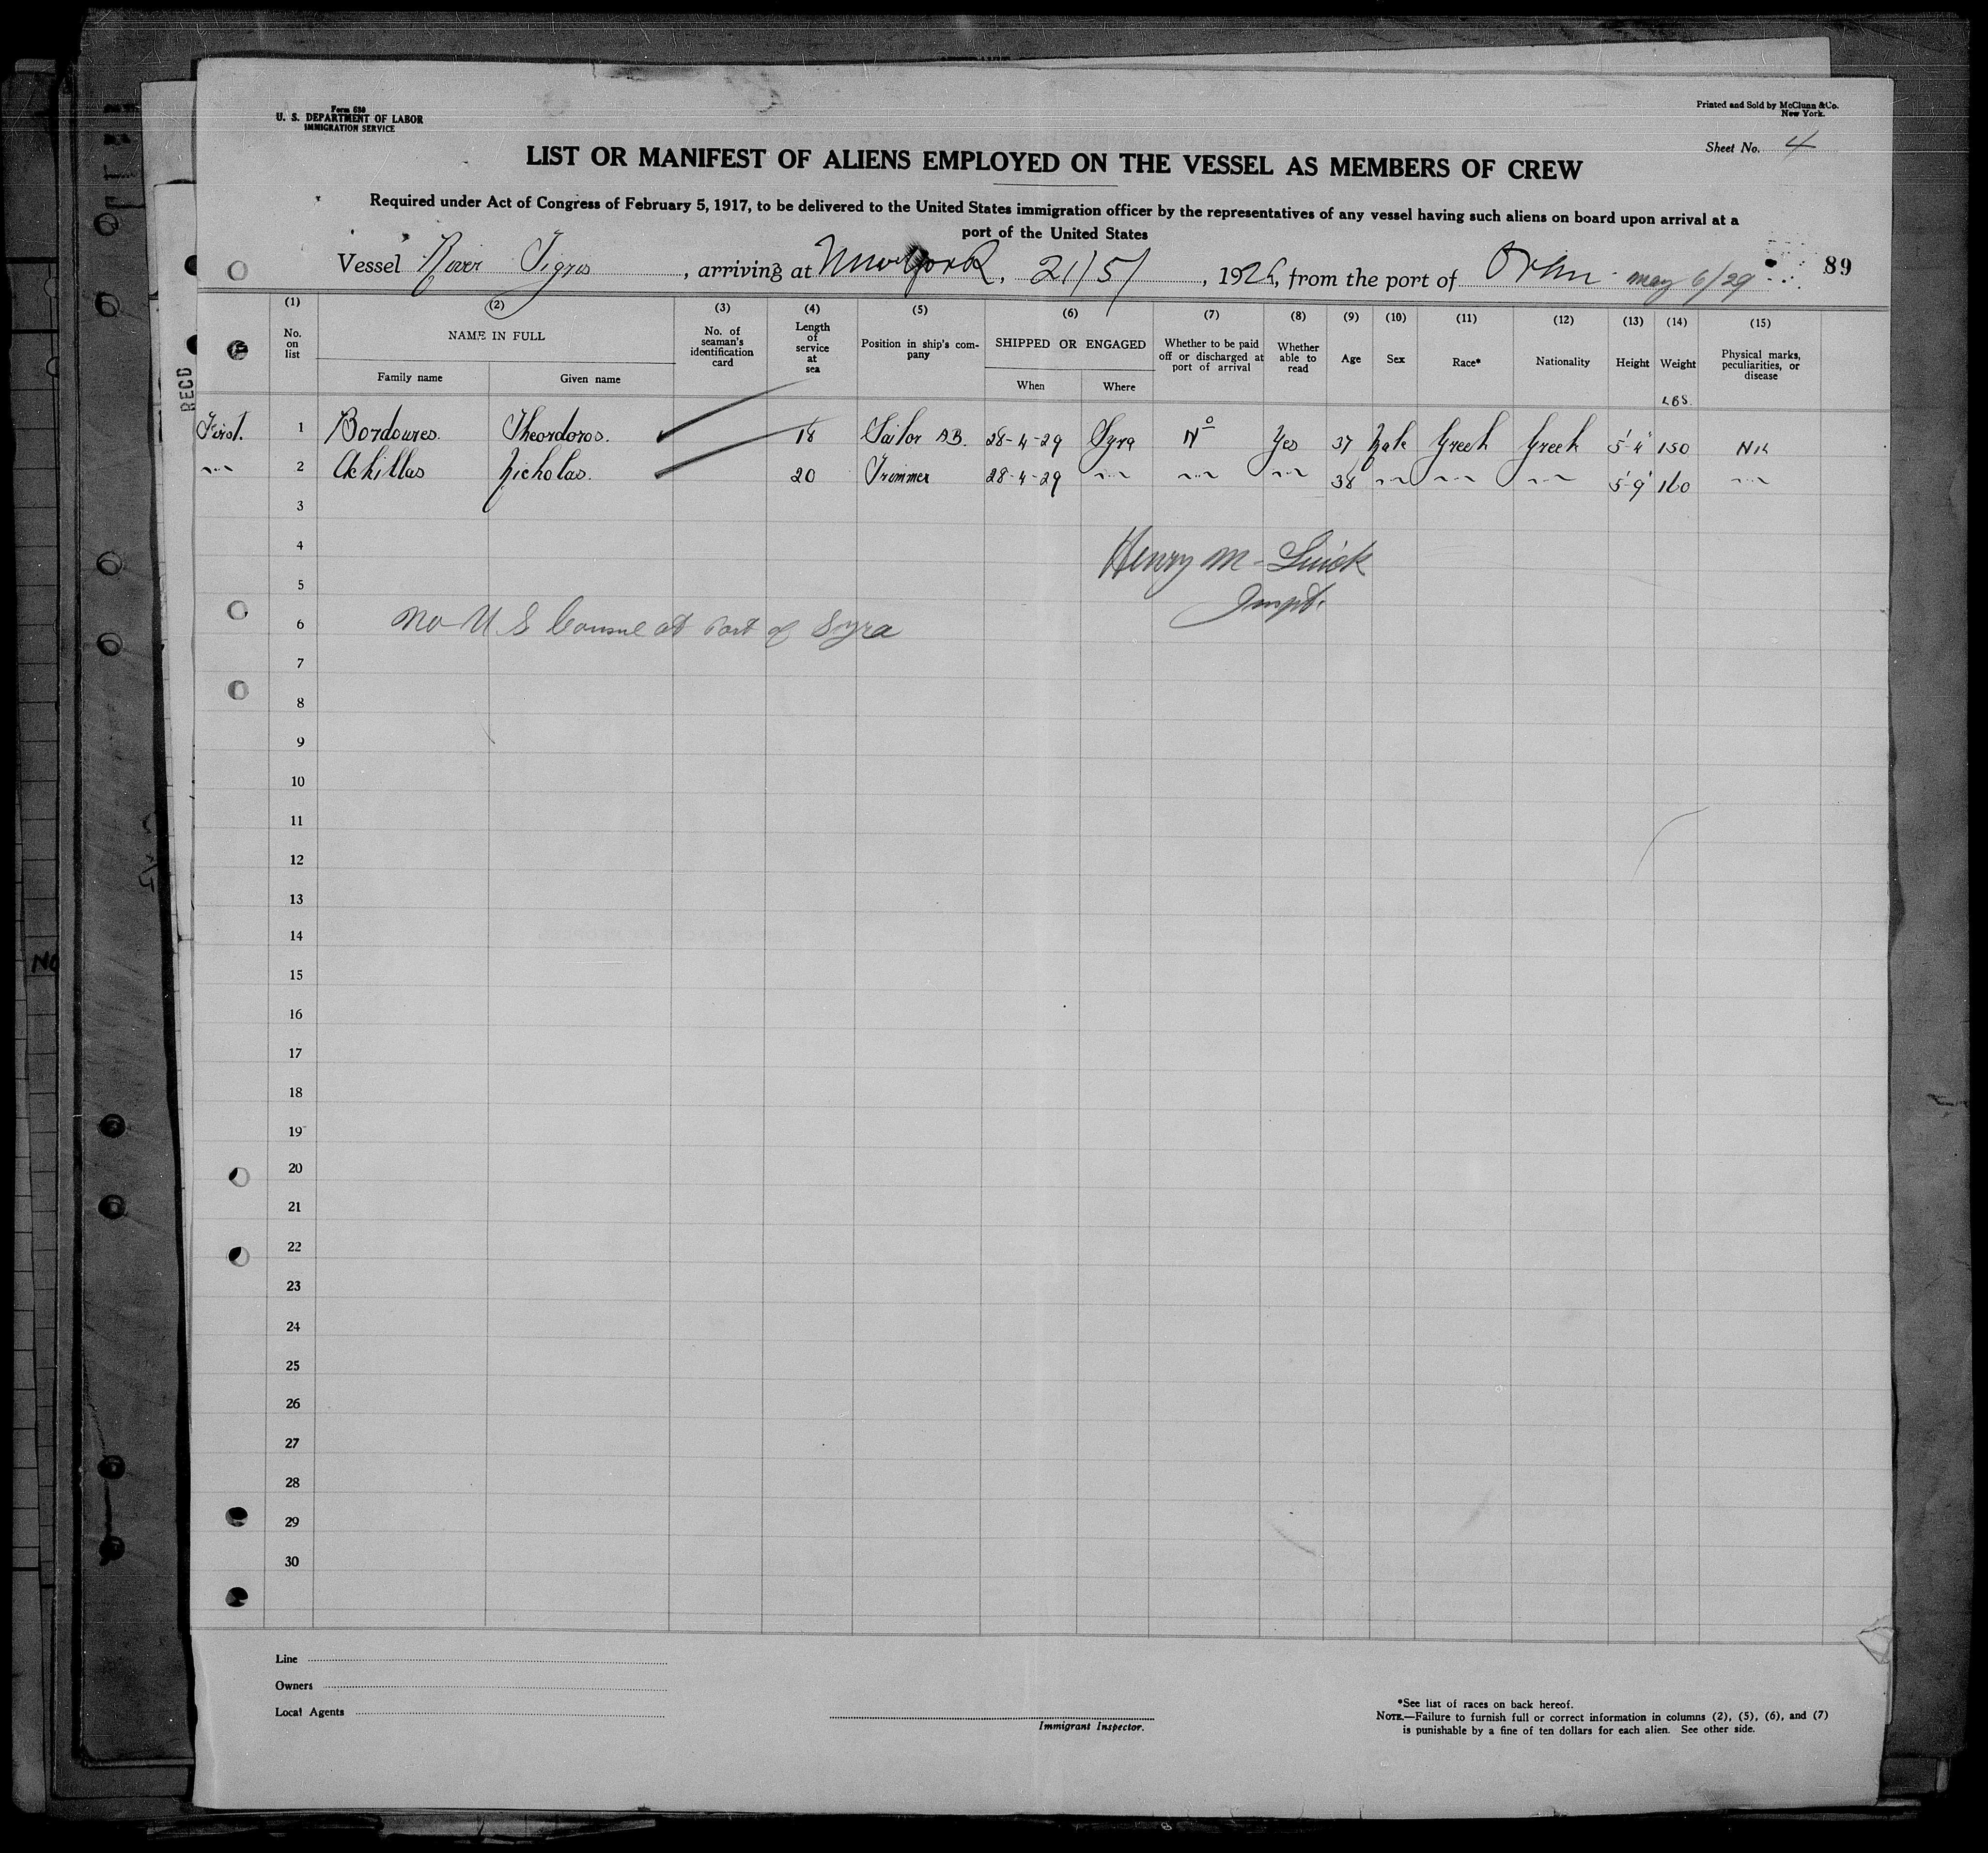 Form 680
U. S. DEPARTMENT OF LABOR
IMMIGRATION SERVICE
Printed and Sold by McClunn & Co.
New York.
Sheet No. 4
LIST OR MANIFEST OF ALIENS EMPLOYED ON THE VESSEL AS MEMBERS OF CREW
Required under Act of Congress of February 5, 1917, to be delivered to the United States immigration officer by the representatives of any vessel having such aliens on board upon arrival at a
port of the United States
Vessel River Tigris, arriving at New York, 21/5/, 1929, from the port of Oran may 6/29 89
(1) (2) (3) (4) (5) (6) (7) (8) (9) (10) (11) (12) (13) (14) (15)
No. on list NAME IN FULL No. of seaman's identification card Length of service at sea Position in ship's company SHIPPED OR ENGAGED Whether to be paid off or discharged at port of arrival Whether able to read Age Sex Race* Nationality Height Weight Physical marks, peculiarities, or disease
Family name Given name When Where
LBS.
RECD
First. 1 Bordoures. Theordoros. 18 Sailor A.B. 28-4-29 Syra No Yes 37 Male Greek Greek 5'-4" 150 Nil
2 Achillas Nicholas. 20 Trimmer 28-4-29 38 5'-9" 160
3
4
Henry M-
5
Inspt.
6 No U S Consul at Port of Syra
7
8
9
10
11
12
13
14
15
16
17
18
19
20
21
22
23
24
25
26
27
28
29
30
Line
Owners
Local Agents
Immigrant Inspector.
*See list of races on back hereof.
NOTE.—Failure to furnish full or correct information in columns (2), (5), (6), and (7)
is punishable by a fine of ten dollars for each alien. See other side.